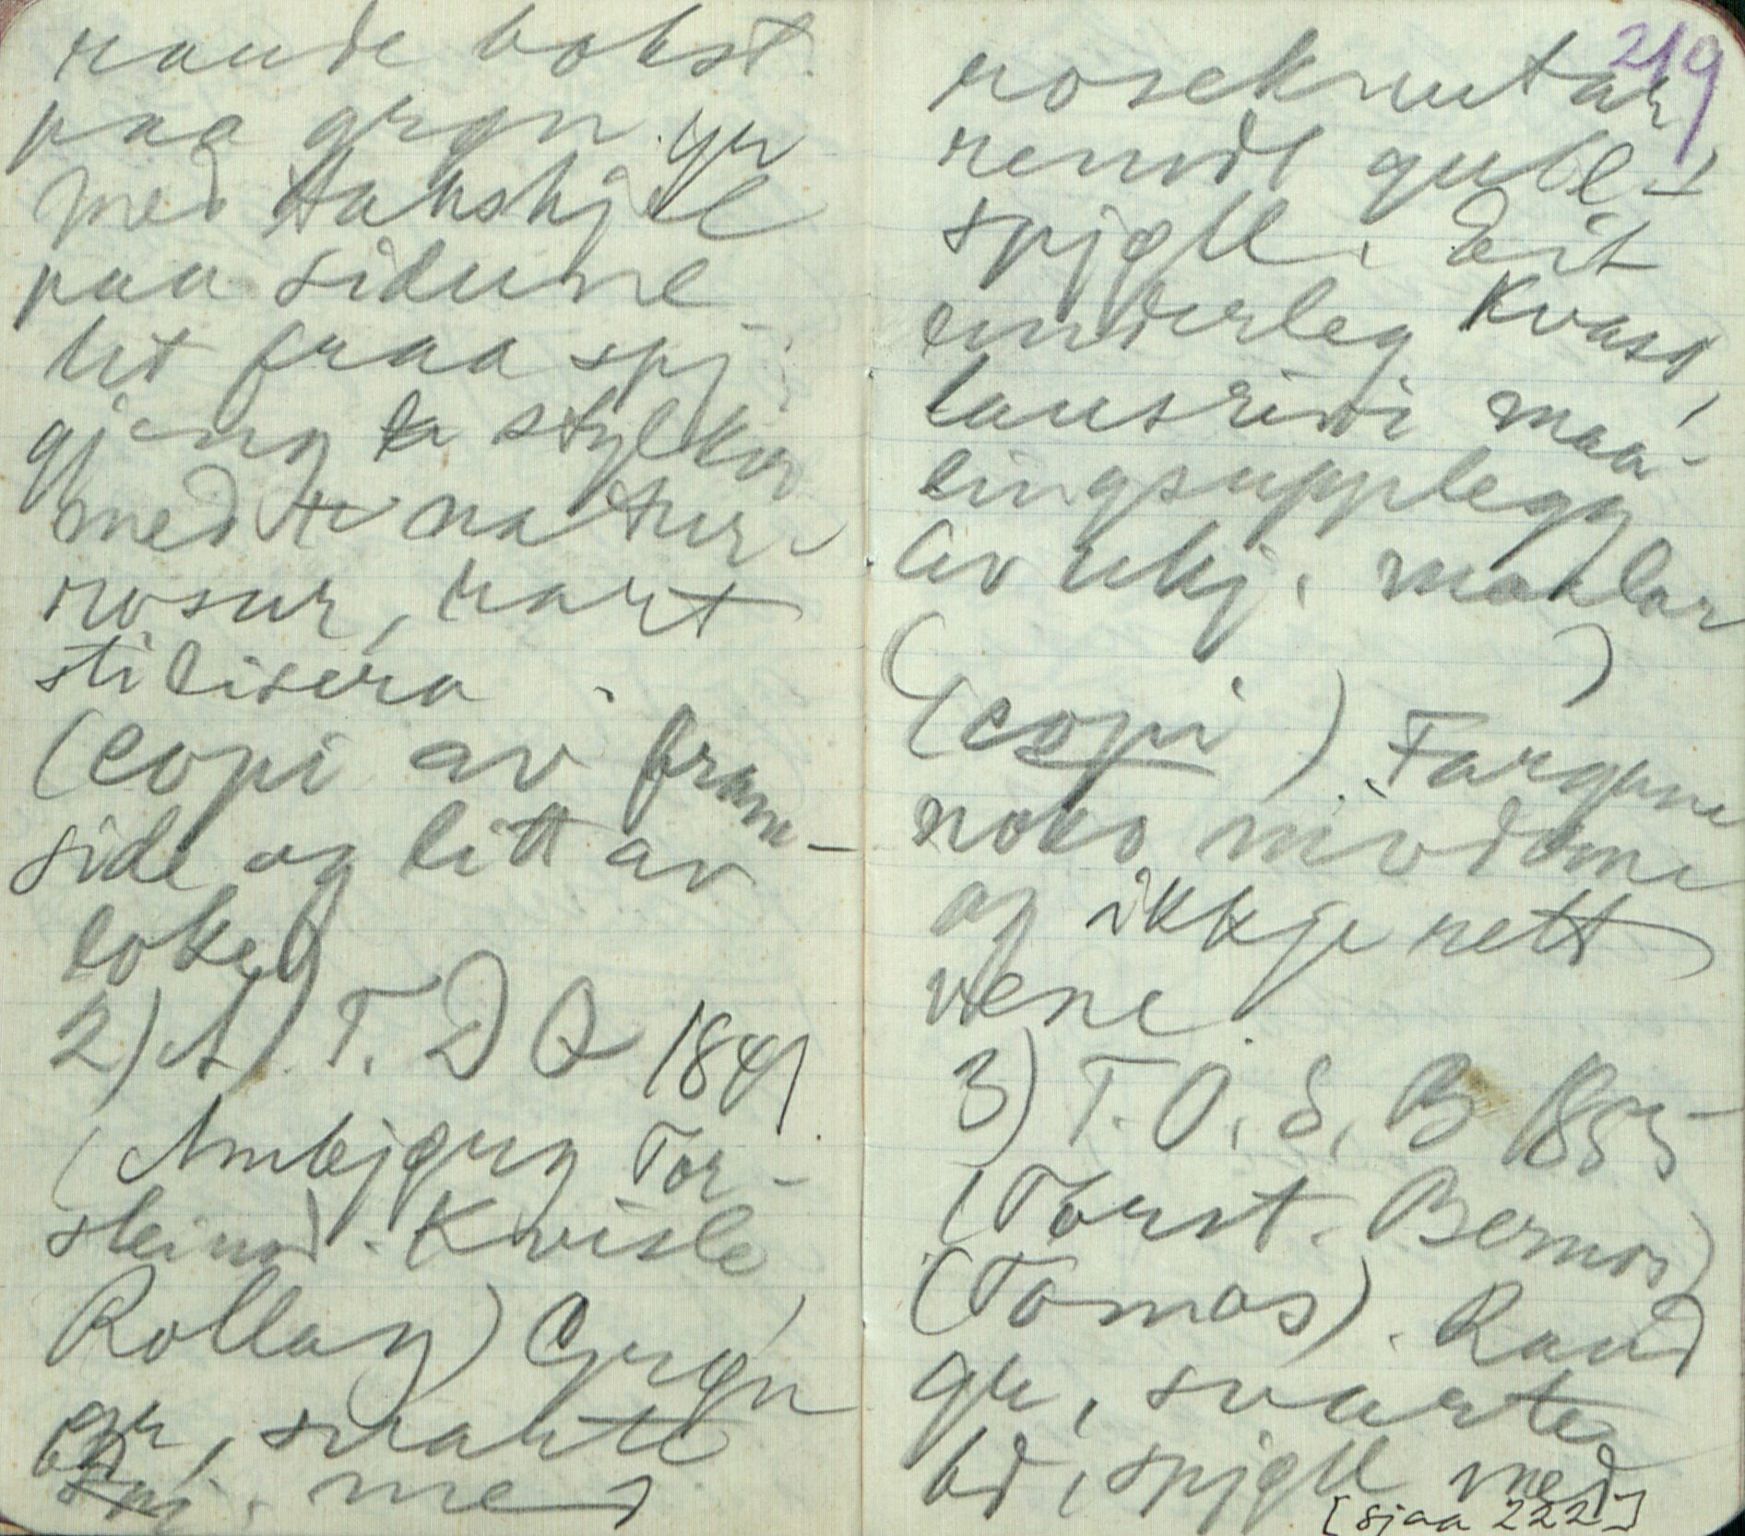 raude bokst.
paa grøn gr
med takskjel
paa sidune
lit fraa spj
gjeng stylkar
med natur-
rosur, rart
stilisera.
(copi av fram-
side og litt av
loket)
2) A. T. D Q 1841
(Ambjørg Tor-
steinsd. Kvisle
Rollag) Grøn
gr, svarte
bd. med
219
rosekrutar
rendt gult
spjøll. Eit
underleg kvast,
lausrivi maa-
lingsupplegg
av ukj. maalar
(copi) Fargane
noko nivdane
og ikkje rett
vene.
3) T. O. S. B 1855
(Torst. Bernos)
(Tomas). Raud
gr, svarte
bd, spjøll med
[sjaa 222]